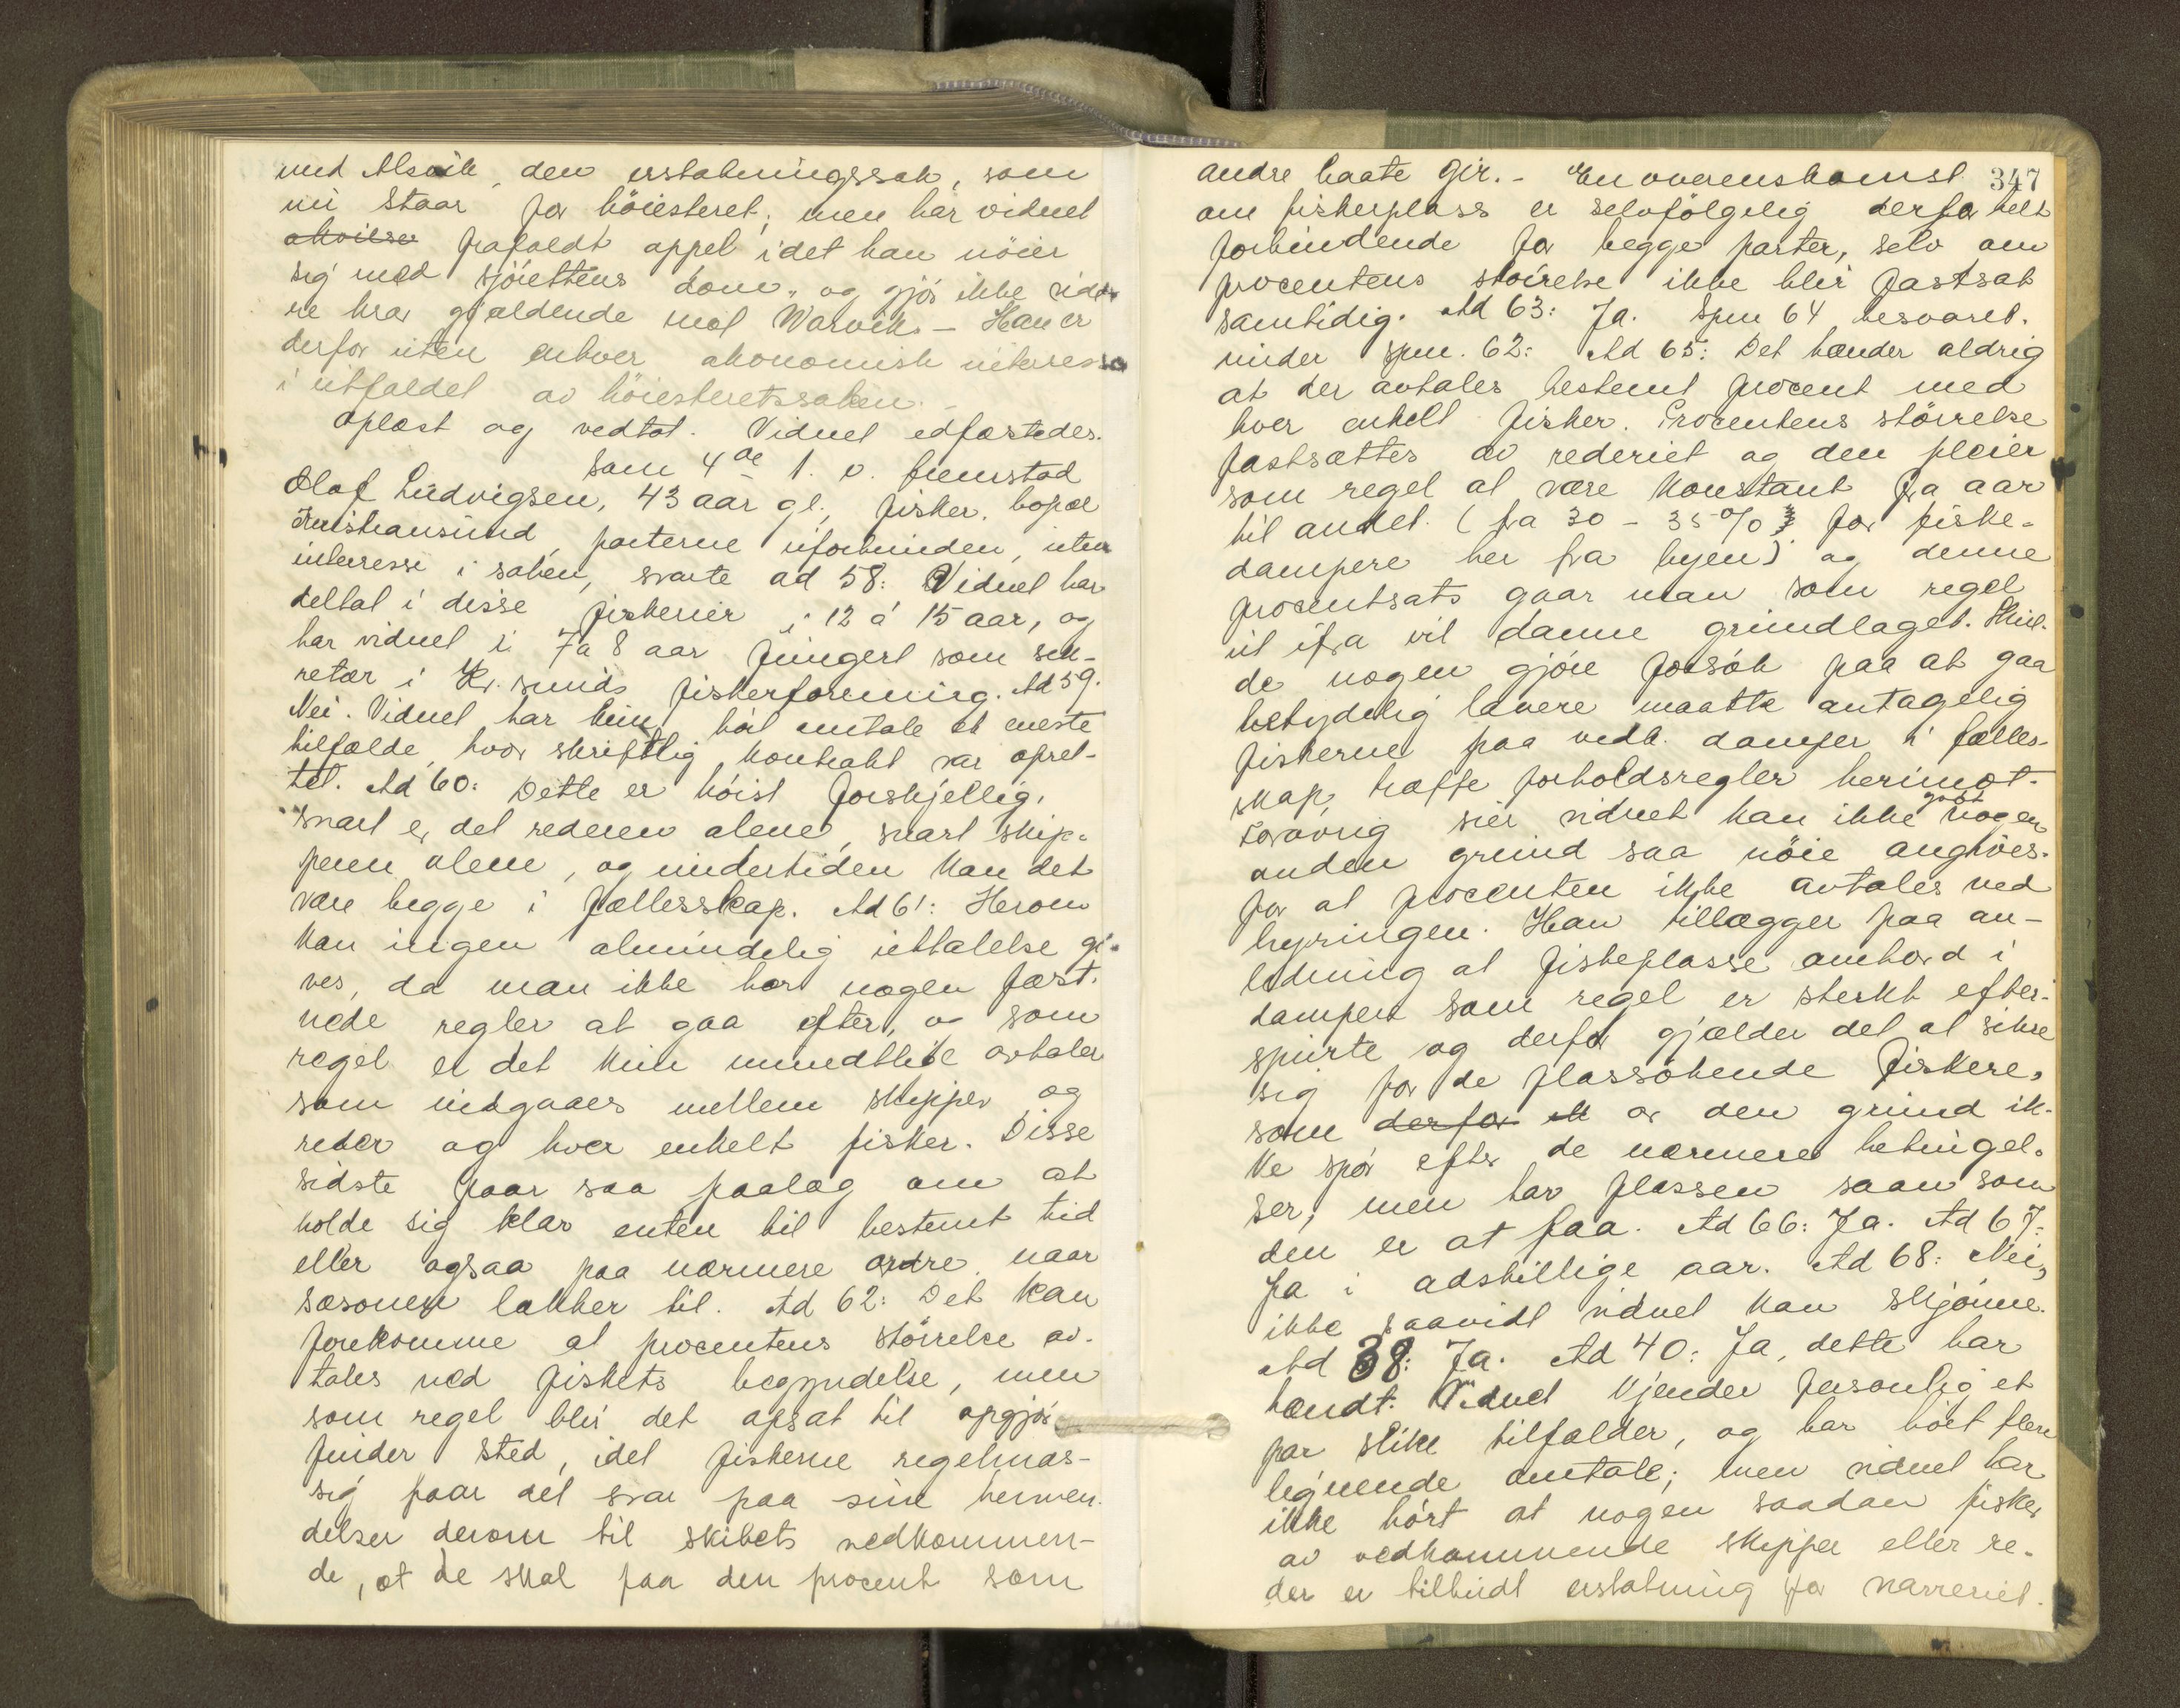 med Alsvik, den erstatningssak, som
nu staar for höiesteret; men har vidnet
frafaldt appel idet han nöier
sig med sjörettens dom, og gjör ikke vide-
re krav gjældende mot Warvik. - Han er
derfor uten enhver økonomisk interesse
i utfaldet av höiesteretssaken. -
Oplæst og vedtat. Vidnet edfæstedes.
Som 4de f. v. fremstod
Olaf Ludvigsen, 43 aar gl., fisker, bopæl
Kristiansund, parterne uforbunden, uten
interesse i saken, svarte ad 58: Vidnet har
deltat i disse fiskerier i 12 á 15 aar, og
har vidnet i 7 a 8 aar fungert som sek-
retær i Kr.sunds fiskerforening. Ad 59.
Nei. Vidnet har kun hört omtale et eneste
tilfælde, hvor skriftlig kontrakt var opret-
tet. Ad 60: Dette er höist forskjellig,
snart er det rederen alene, snart skip-
peren alene, og undertiden kan det
være begge i fællesskap. Ad 61: Herom
kan ingen almindelig uttalelse gi-
ves, da man ikke har nogen fast-
nede regler at gaa efter, og som
regel er det kun mundtlige avtaler
som indgaaes mellem skipper og
reder og hver enkelt fisker. Disse
sidste faar saa paalæg om at
holde sig klar enten til bestemt tid
eller ogsaa paa nærmere ordre naar
sæsonen lakker til. Ad 62: Det kan
forekomme at procentens störrelse av-
tales ved fiskets begyndelse, men
som regel blir det opsat til opgjör
finder sted, idet fiskerne regelmæs-
sig faar det svar paa sine henven-
delser derom til skibets vedkommen-
de, at de skal faa den procent som
347
andre baate gir. - En overenskomst
om fiskerplass er selvfölgelig derfor helt
forbindende for begge parter, selv om
procentens störrelse ikke blir fastsat
samtidig. Ad 63: Ja. Spm 64 besvaret
under spm. 62: Ad 65: Det hænder aldrig
at der avtales bestemt procent med
hver enkelt fisker. Procentens störrelse
fastsættes av rederiet og den pleier
som regel at være konstant fra aar
til andet. (fra 30 - 35 % for fiske-
dampere her fra byen) og denne
procentsats gaar man som regel
ut ifra vil danne grundlaget. Skul-
de nogen gjöre forsök paa at gaa
betydelig lavere maatte antagelig
fiskerne paa vedk. damper i fælles-
skap træffe forholdsregler herimot.
Forövrig sier vidnet kan ikke godt nogen
anden grund saa nöie angives
for at procenten ikke avtales ved
hyringen. Han tillægger paa an-
ledning at fiskeplasse ombord i
dampere som regel er sterkt efter-
spurte og derfor gjælder det at sikre
sig for de plassökende fiskere,
som derfor av den grund ik-
ke spör efter de nærmere betingel-
ser, men tar plassen saan som
den er at faa. Ad 66: Ja. Ad 67:
Ja i adskillige aar. Ad 68: Nei,
ikke saavidt vidnet kan skjönne.
Ad 38: Ja. Ad 40: Ja, dette har
hændt. Vidnet kjender personlig et
par slike tilfælder, og har hört flere
lignende omtale; men vidnet har
ikke hört at nogen saadan fisker
av vedkommende skipper eller re-
der er tilbudt erstatning for narreriet.